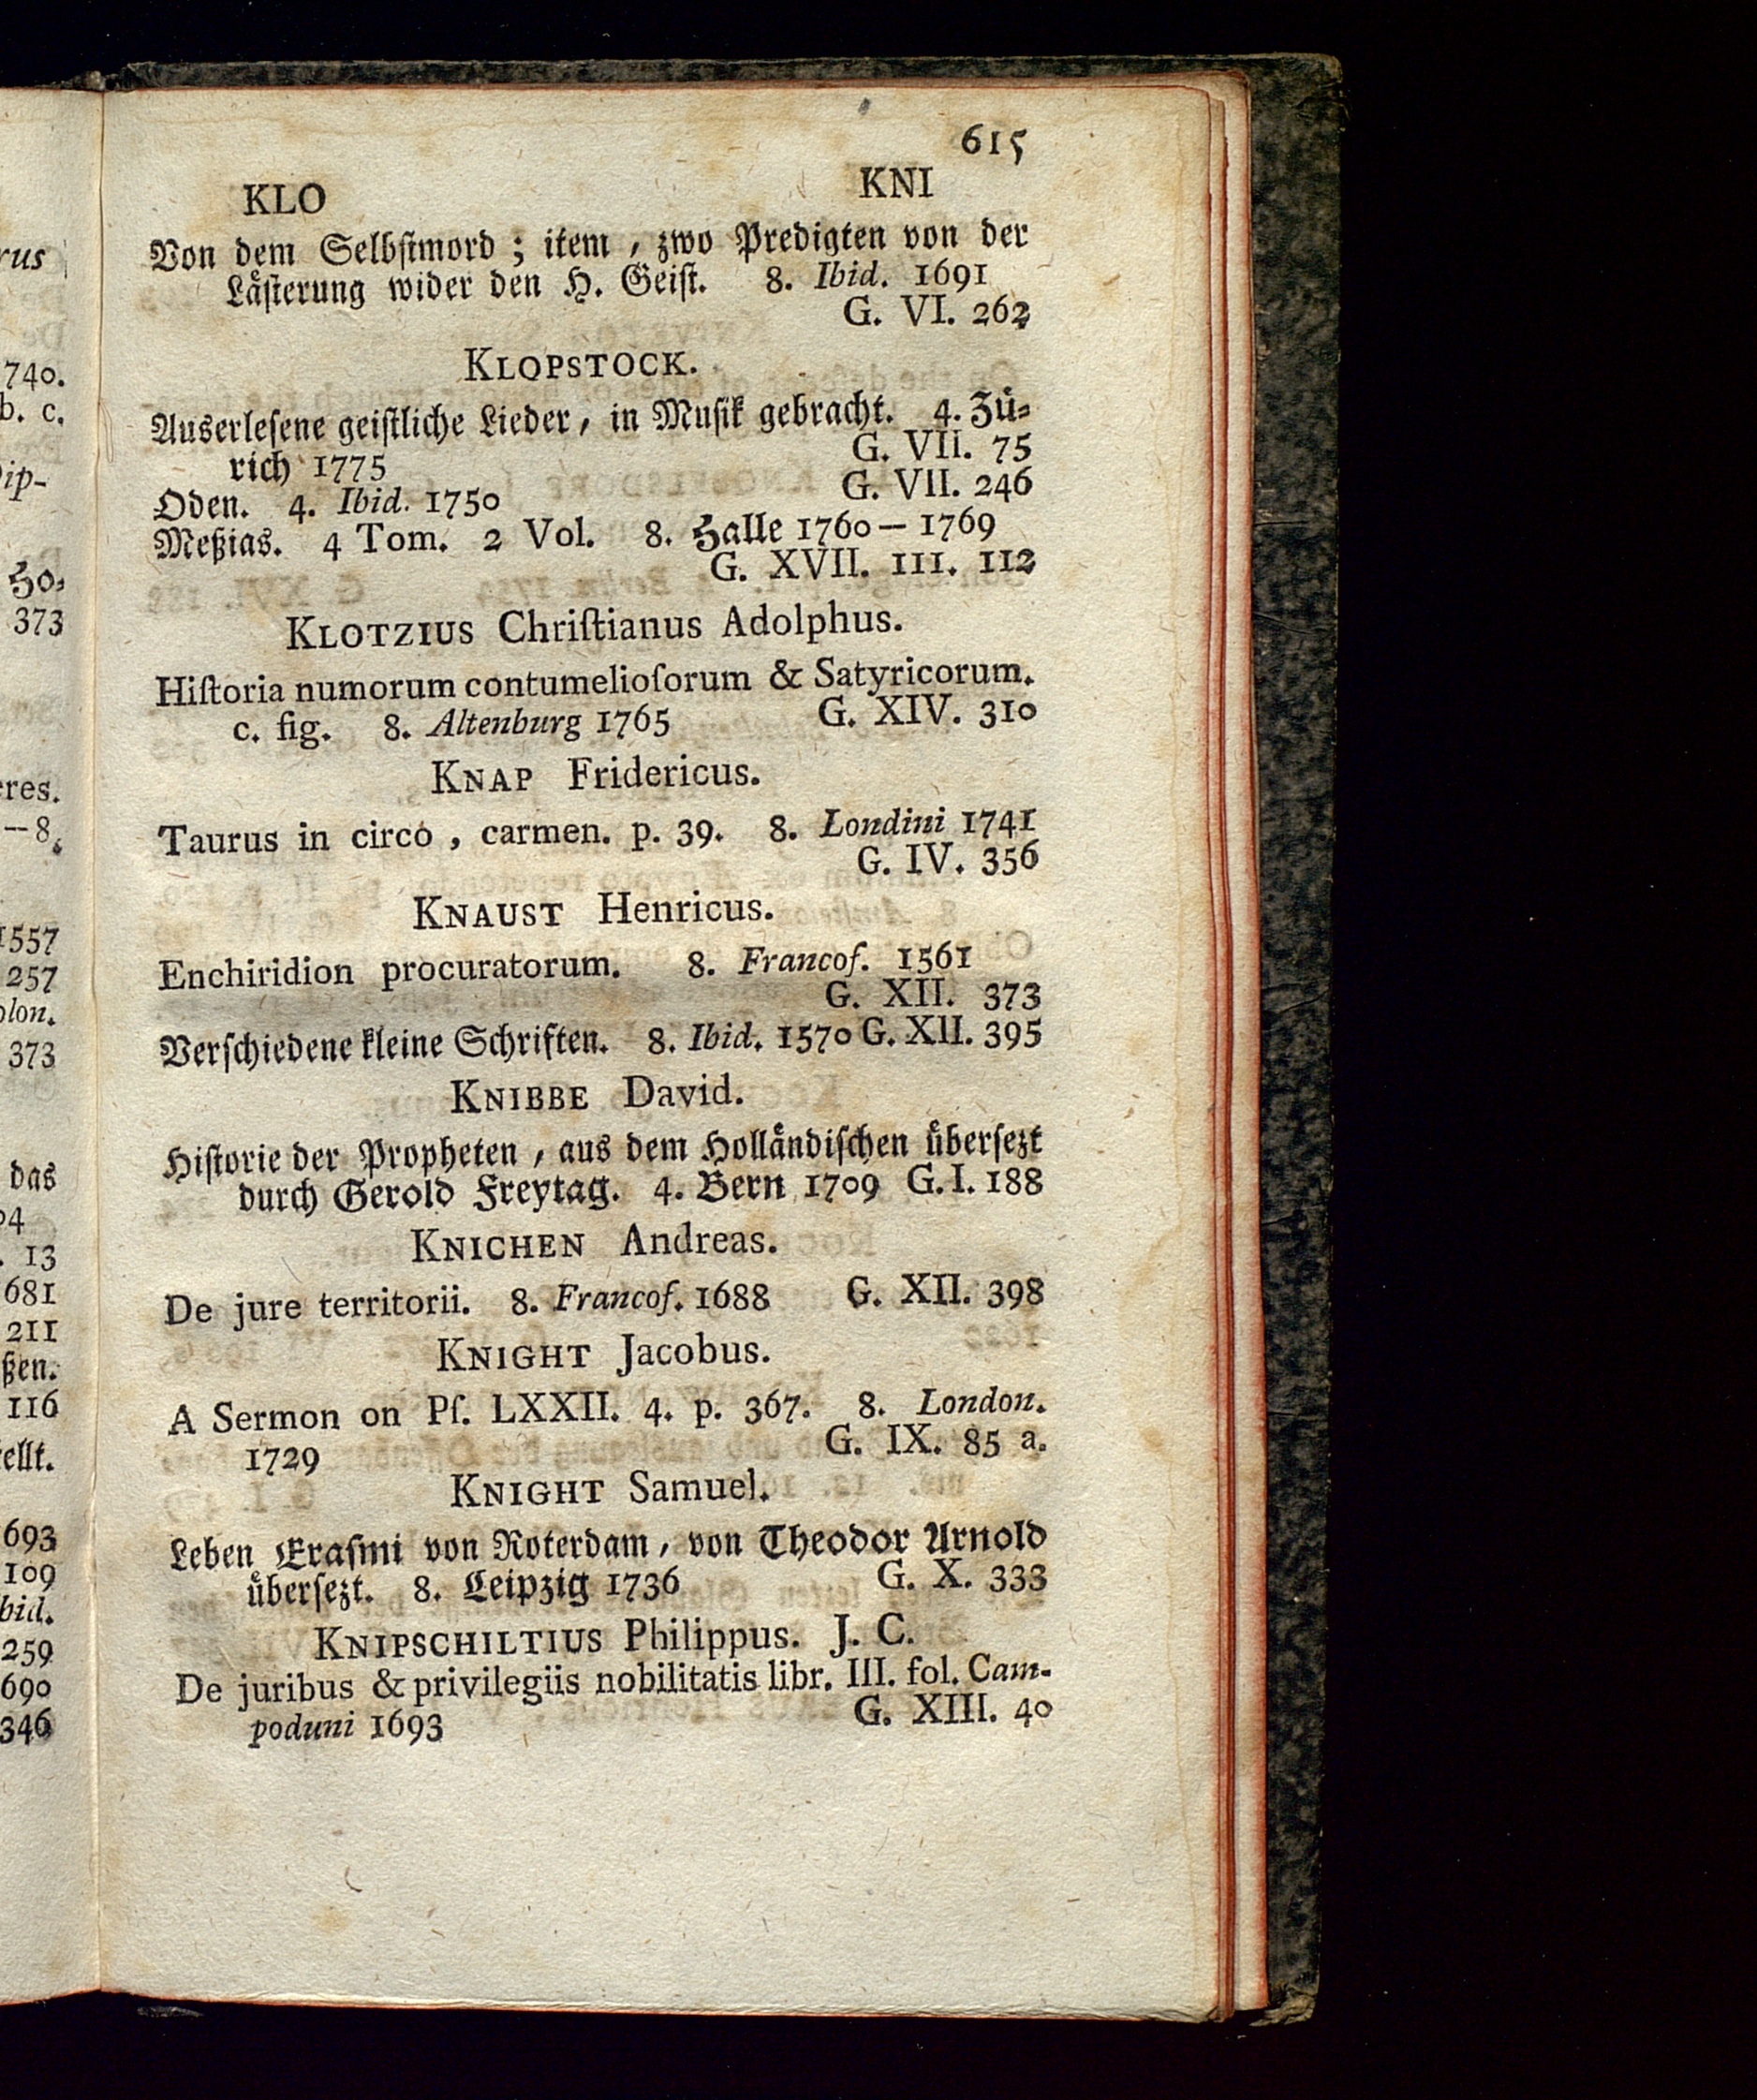 615
KLO KNI
Von dem Selbſtmord; item, zwo Predigten von der
Läſterung wider den H. Geiſt. 8. Ibid. 1691
G. VI. 262
KLOPSTOCK.
Auserleſene geiſtliche Lieder, in Muſik gebracht. 4. Zü-
rich 1775 G. VII. 75
Oden. 4. Ibid. 1750 G. VII. 246
Meßias. 4 Tom. 2 Vol. 8. Halle 1760 — 1769
G. XVII. 111. 112
KLOTZIUS Chriſtianus Adolphus.
Hiſtoria numorum contumelioſorum & Satyricorum.
c. fig. 8. Altenburg 1765 G. XIV. 310
KNAP Fridericus.
Taurus in circo, carmen. p. 39. 8. Londini 1741
G. IV. 356
KNAUST Henricus.
Enchiridion procuratorum. 8. Francof. 1561
G. XII. 373
Verſchiedene kleine Schriften. 8. Ibid. 1570 G. XII. 395
KNIBBE David.
Hiſtorie der Propheten, aus dem Holländiſchen überſezt
durch Gerold Freytag. 4. Bern 1709 G. I. 188
KNICHEN Andreas.
De jure territorii. 8. Francof. 1688 G. XII. 398
KNIGHT Jacobus.
A Sermon on Pſ. LXXII. 4. p. 367. 8. London.
1729 G. IX. 85 a.
KNIGHT Samuel.
Leben Eraſmi von Roterdam, von Theodor Arnold
überſezt. 8. Leipzig 1736 G. X. 333
KNIPSCHILTIUS Philippus. J. C.
De juribus & privilegiis nobilitatis libr. III. fol. Cam-
poduni 1693 G. XIII. 40